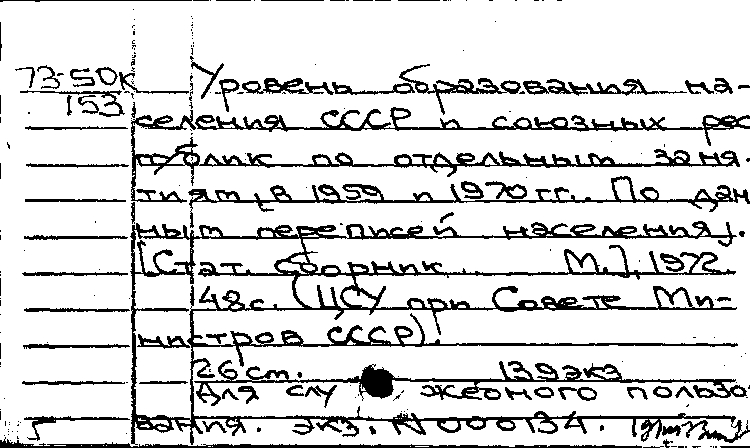 73-50к
153
Уровень образования на-
селения СССР и союзных рес
публик по отдельным заня-
тиям, в 1959 и 1970 гг.. По дан
ным переписей населения).
[Стат. сборник... М.], 1972.
48с. (ЦСУ при Совете Ми-
нистров СССР).
26 cm. 139экз
Для слу жебного пользо
вания. экз. N 000134.